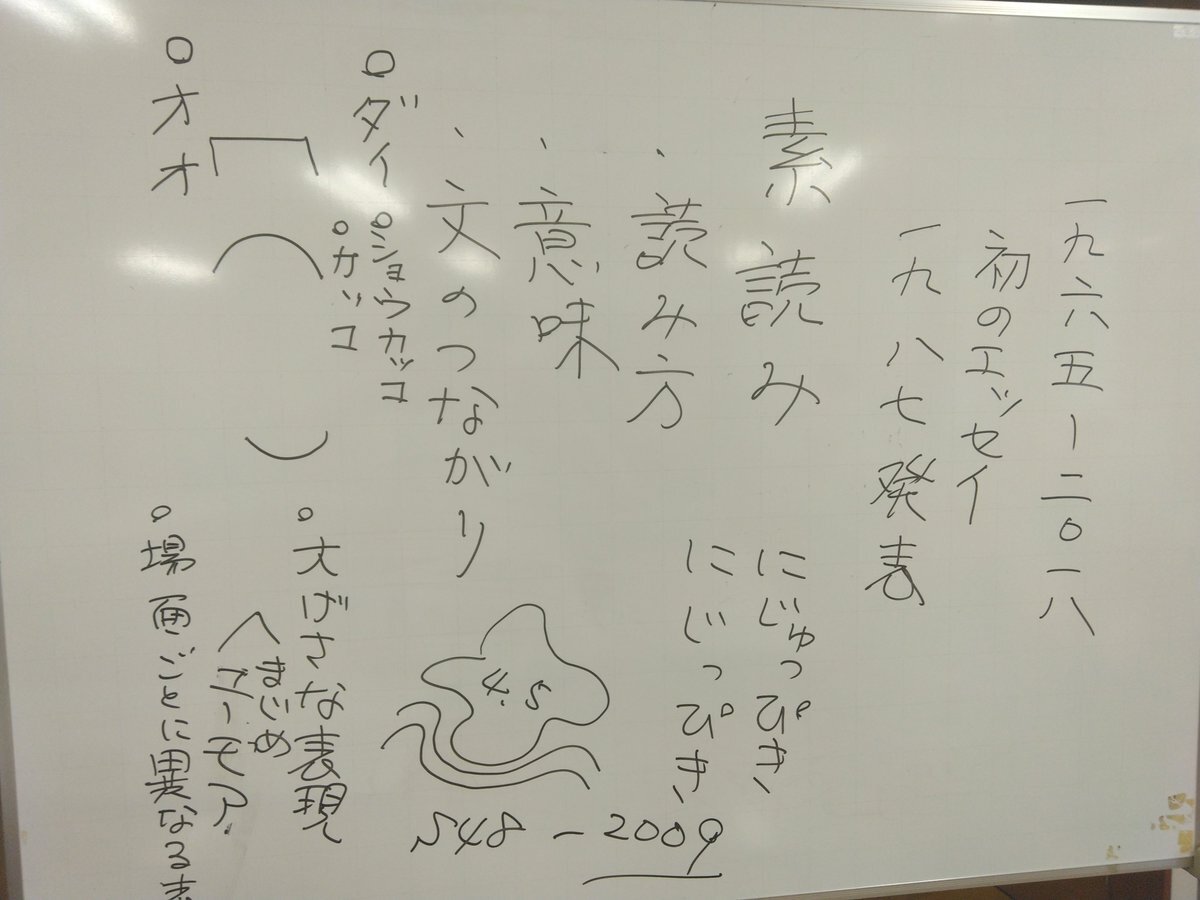 一九六五ー二〇一八
初のエッセイ
一九八七発表
素読み
、読み方
、意味
、文のつながり
にじゅっぴき、
にじっぴき、
4.5
548-2009
○ダイ
○ショウカッコ
○カッコ
「
( )
○オオ
○大げさな表現
まじめ
ユーモア
○場面ごとに異なる表